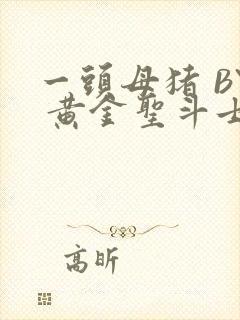 一頭母猪 BY
黄金聖斗士
高昕